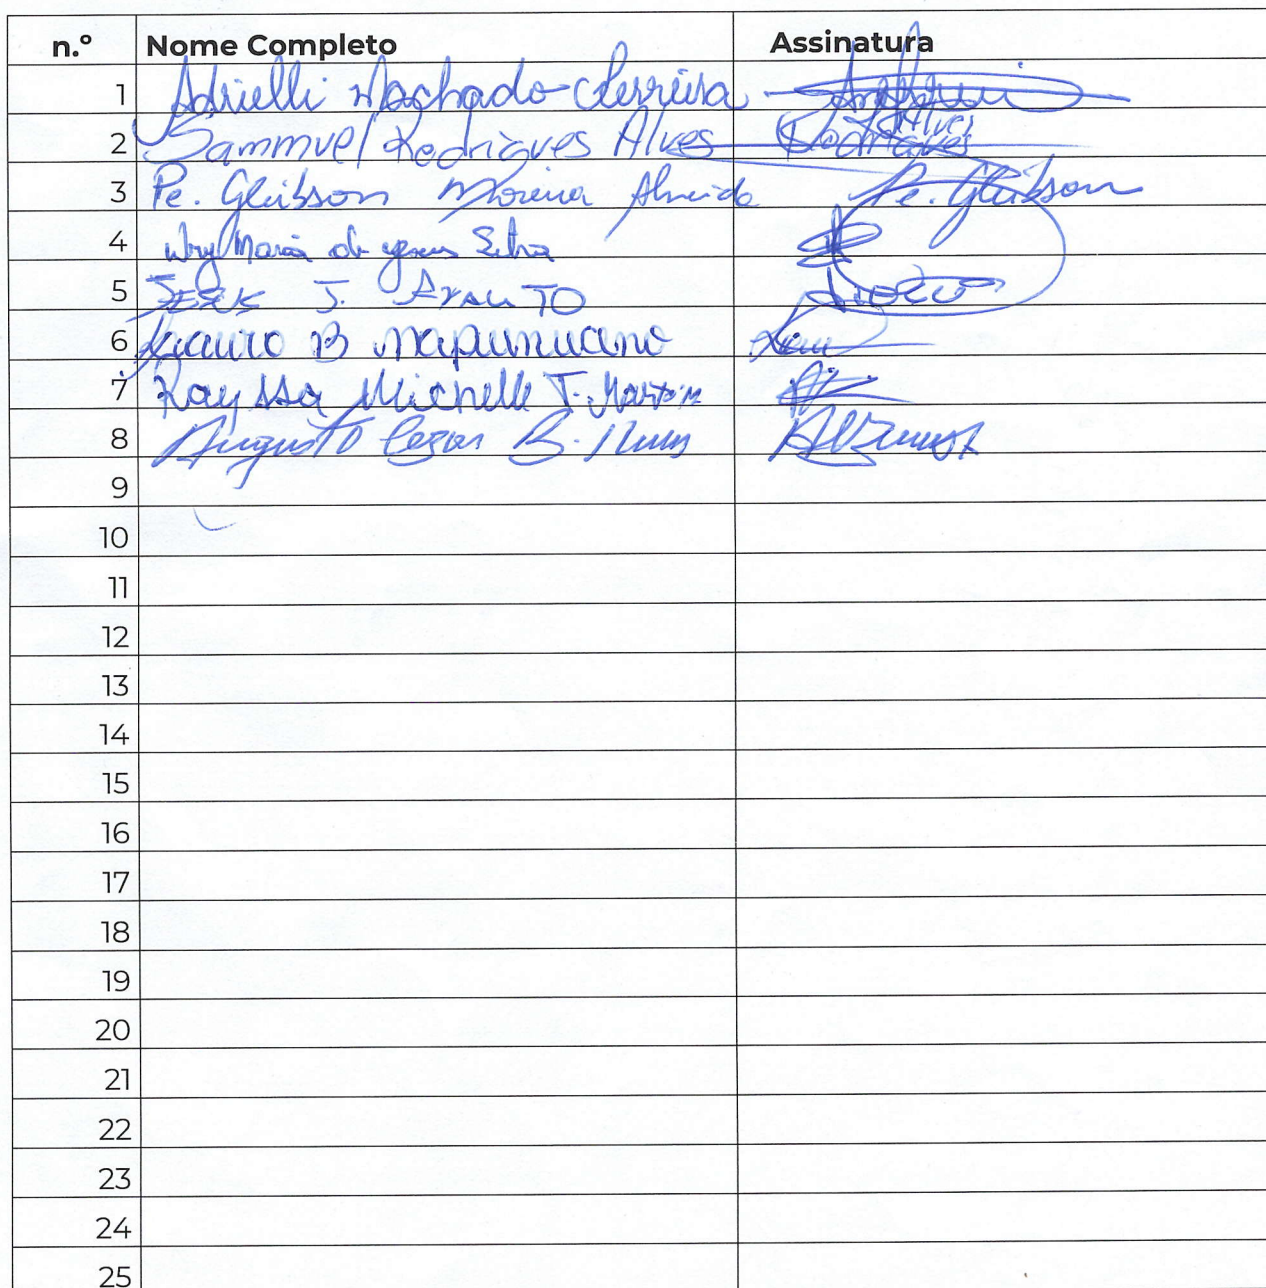 n.º Nome Completo Assinatura
1 Adrielli Machado Ferreira
2 Sammuel Rodrigues Alves Rodrigues Alves
3 Pe. Gleibson Moreira Almeida Pe. Gleibson
4 Maria de Silva
5 J.
6 B
7 Rayssa Michelle T. Martins
8 Augusto Cezar B. Nunes
9
10
11
12
13
14
15
16
17
18
19
20
21
22
23
24
25